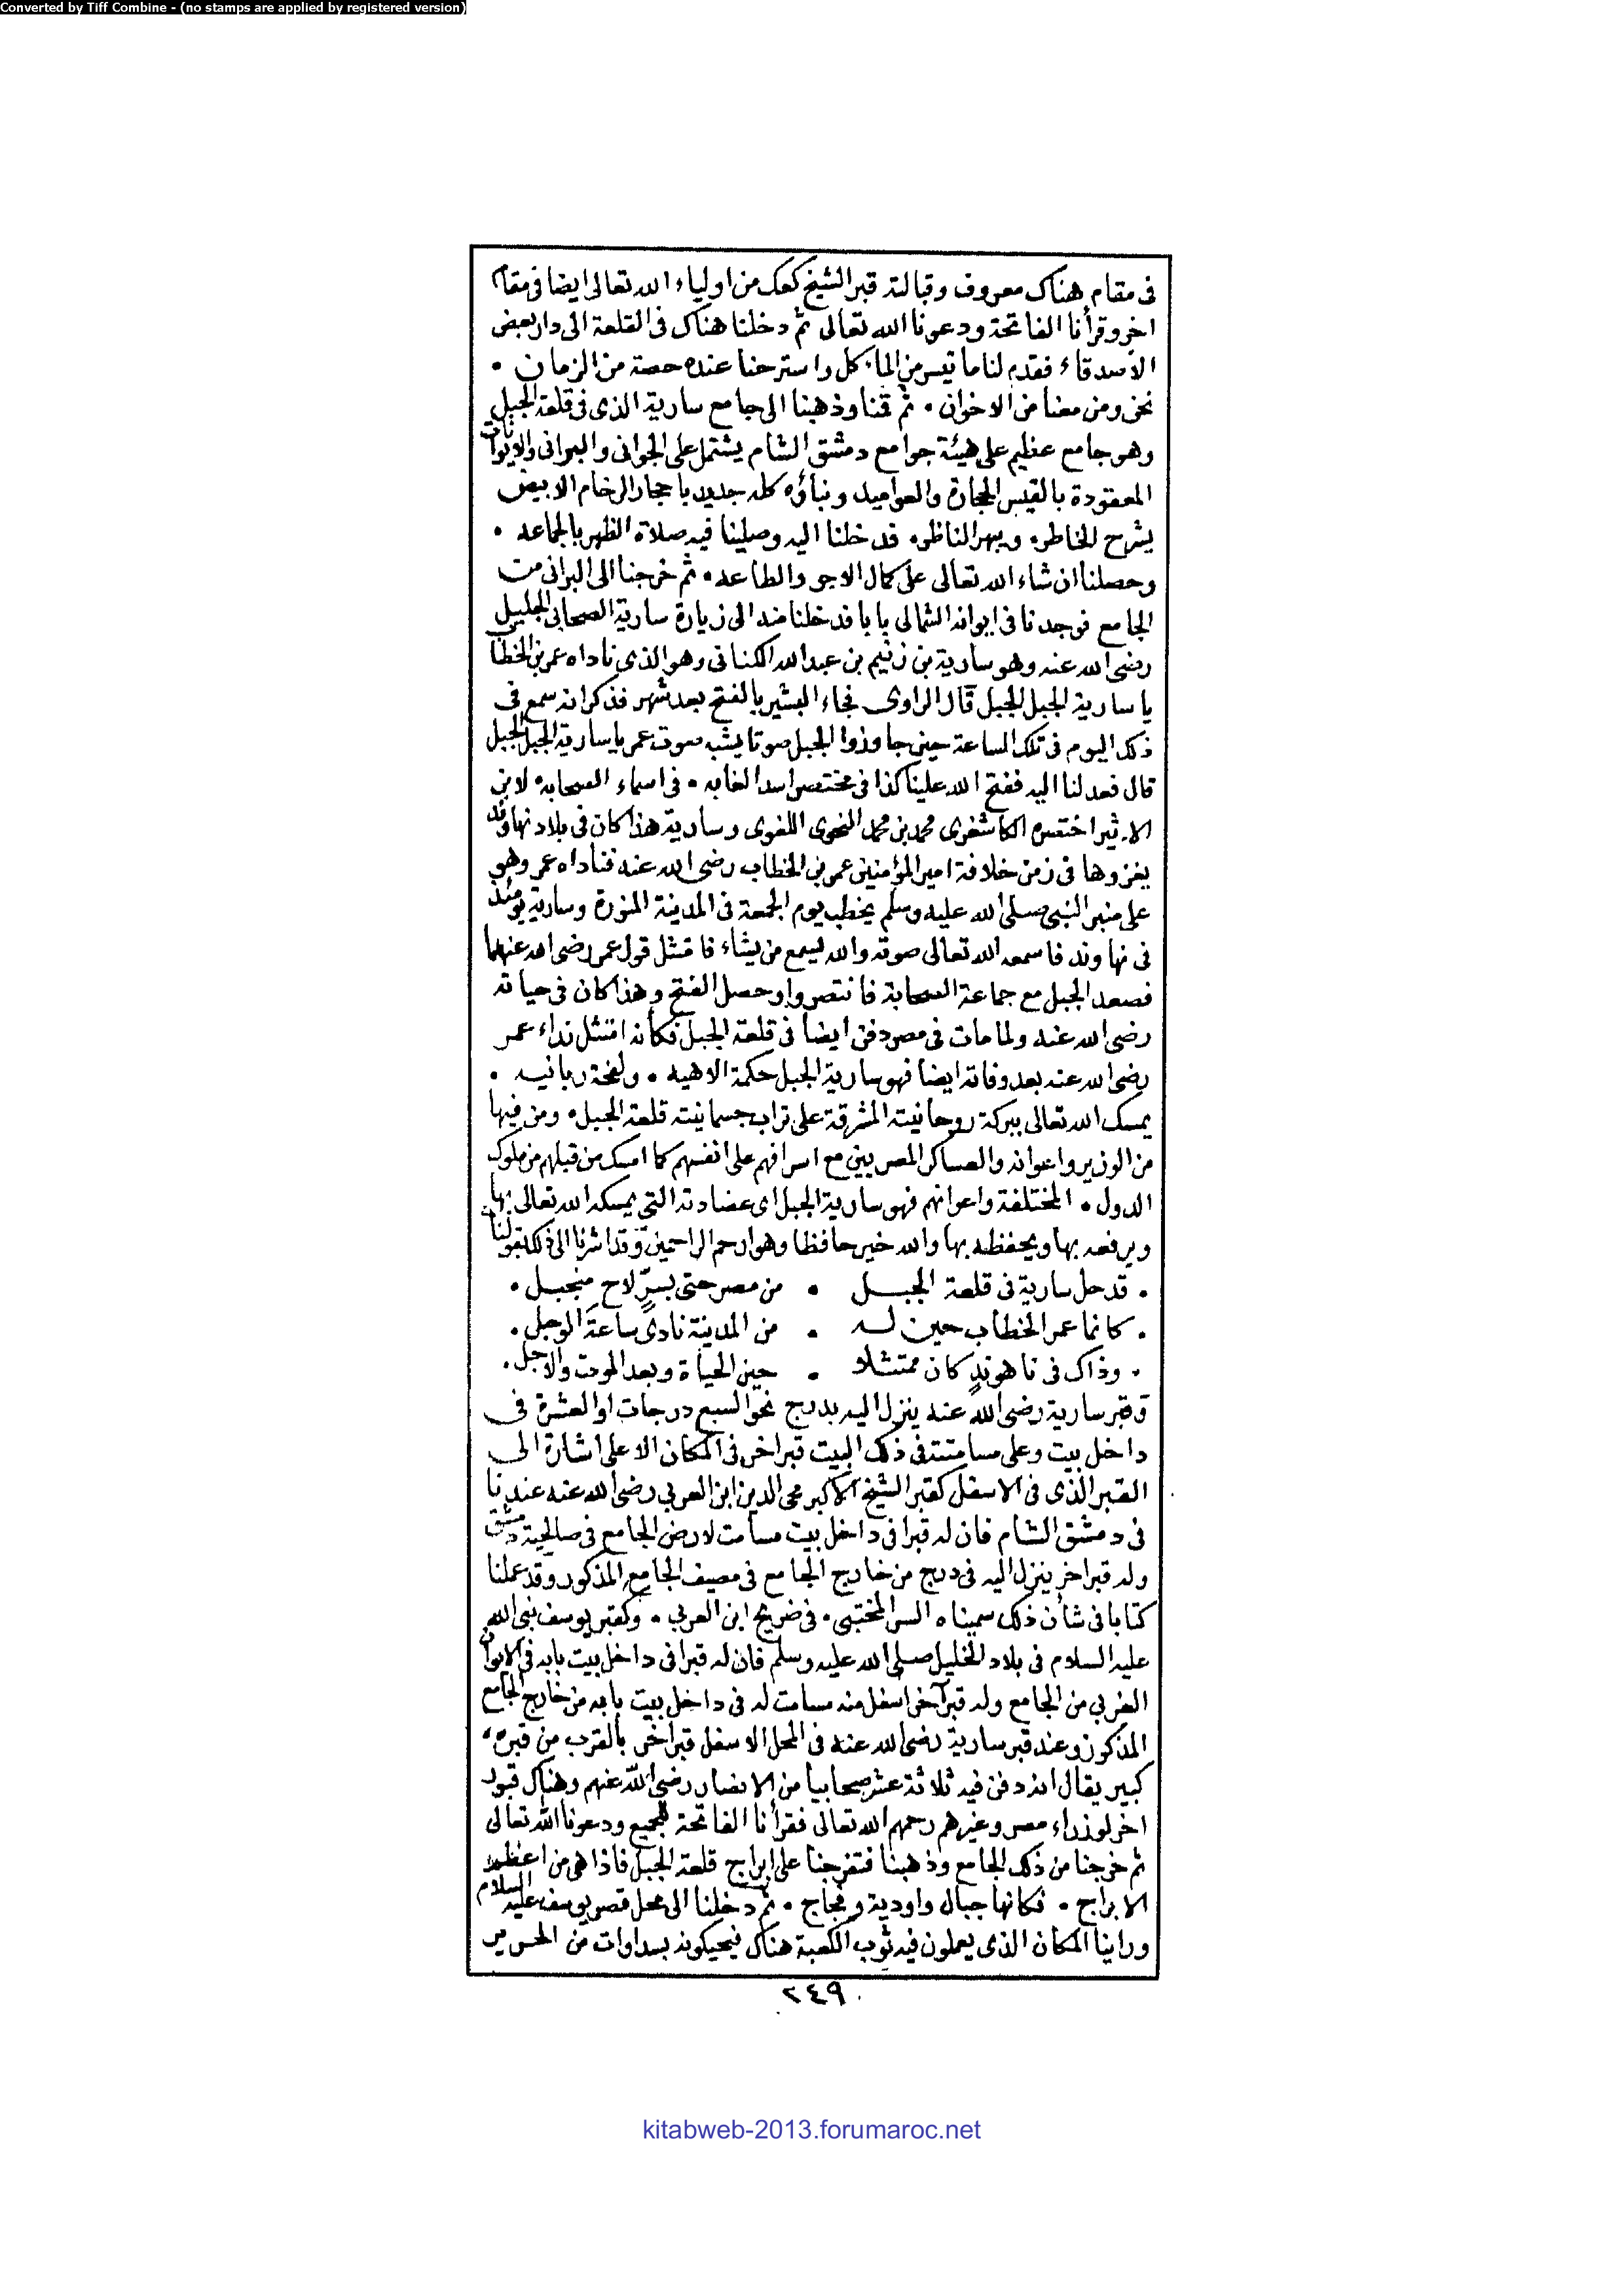 Converted by Tiff Combine - (no stamps are applied by registered version)
فى مقام هناك معروف وقبالته قبر الشيخ كعك من اولياء الله تعالى ايضا فى مقام
اخر وقرأنا الفاتحة ودعونا الله تعالى ثم دخلنا هناك فى القلعة الى دار بعض
الاصدقاء فقدم لنا ما تيسر من المآكل واسترحنا عنده حصة من الزمان •
نحن ومن معنا من الاخوان • ثم قمنا وذهبنا الى جامع سارية الذى فى قلعة الجبل
وهو جامع عظيم على هيئة جوامع دمشق الشام يشتمل على الجوانى والبرانى والايوانات
المعقودة بالقيس الحجارة والعواميد وبناؤه كله جديد باحجار الرخام الابيض
يشرح الخاطر • ويبهر الناظر • فدخلنا اليه وصلينا فيه صلاة الظهر بالجماعه •
وحصلنا ان شاء الله تعالى على كمال الاجر والطاعه • ثم خرجنا الى البرانى من
الجامع فوجدنا فى ايوانه الشمالى بابا فدخلنا منه الى زيارة سارية الصحابى الجليل
رضى الله عنه وهو سارية بن زنيم بن عبد الله الكنانى وهو الذى ناداه عمر بن الخطاب
يا سارية الجبل الجبل قال الراوى فجاء البشير بالفتح بعد شهر فذكر انه سمع فى
ذلك اليوم فى تلك الساعة حين جاوزوا الجبل صوتا يشبه صوت عمر يا سارية الجبل الجبل
قال فعدلنا اليه ففتح الله علينا كذا فى مختصر اسد الغابه • فى اسماء الصحابه • لابن
الاثير اختصره الكاشغرى محمد بن محمد النحوى اللغوى وسارية هذا كان فى بلاد نهاوند
يغزوها فى زمن خلافة امير المؤمنين عمر بن الخطاب رضى الله عنه فناداه عمر وهو
على منبر النبى صلى الله عليه وسلم يخطب يوم الجمعة فى المدينة المنورة وسارية يومئذ
فى نهاوند فاسمعه الله تعالى صوته والله يسمع من يشاء فامتثل قول عمر رضى الله عنهما
فصعد الجبل مع جماعة الصحابة فانتصروا وحصل الفتح وهذا كان فى حياته
رضى الله عنه ولما مات فى مصر دفن ايضا فى قلعة الجبل فكأنه امتثل نداء عمر
رضى الله عنه بعد وفاته ايضا فهو سارية الجبل حكمة الاهيه • ولمحة ربانيه •
يمسك الله تعالى ببركة روحانيته المشرقة على تراب جسمانيته قلعة الجبل • ومن فيها
من الوزير واعوانه والعساكر المصريين مع اسرافهم على انفسهم كما امسك من قبلهم من ملوك
الدول • المختلفة واعوانهم فهو سارية الجبل اى عضادته التى يمسكه الله تعالى بها
ويرفعه بها ويحفظه بها والله خير حافظا وهو ارحم الراحمين وقد اشرنا الى ذلك بقولنا
• قد حل سارية فى قلعة الجبل • من مصر حتى بسرٍّ لاح منجبل •
• كانما عمر الخطاب حين له • من المدينة نادى ساعة الوجل •
• وذاك فى ناهوندٍ كان ممتثلا • حين الحياة وبعد الموت والاجل •
وقبر سارية رضى الله عنه ينزل اليه بدرج نحو السبع درجات او العشرة فى
داخل بيت وعلى مسامتته فى ذلك البيت قبر اخر فى المكان الاعلى اشارة الى
القبر الذى فى الاسفل كقبر الشيخ الاكبر محى الدين ابن العربي رضى الله عنه عندنا
فى دمشق الشام فان له قبرا فى داخل بيت مسامت لارض الجامع فى صالحية دمشق
وله قبر اخر ينزل اليه فى درج من خارج الجامع فى مصيف الجامع المذكور وقد عملنا
كتابا فى شأن ذلك سميناه السر المختبى • فى ضريح ابن العربي • وكقبر يوسف نبى الله
عليه السلام فى بلاد الخليل صلى الله عليه وسلم فان له قبرا فى داخل بيت بابه فى الايوان
الغربي من الجامع وله قبر آخر اسفل منه مسامت له فى داخل بيت بابه من خارج الجامع
المذكور وعند قبر سارية رضى الله عنه فى المحل الاسفل قبر اخر بالقرب من قبره
كبير يقال انه دفن فيه ثلاثة عشر صحابيا من الانصار رضى الله عنهم وهناك قبور
اخر لوزراء مصر وغيرهم رحمهم الله تعالى فقرأنا الفاتحة للجميع ودعونا الله تعالى
ثم خرجنا من ذلك الجامع وذهبنا فتفرجنا على ابراج قلعة الجبل فاذا هى من اعظم
الابراج • فكانها جبال واودية وفجاج • ثم دخلنا الى محل قصر يوسف عليه السلام
وراينا المكان الذى يعملون فيه ثوب الكعبة هناك فيحيكونه بسداوات من الحرير
٢٤٩
kitabweb-2013.forumaroc.net